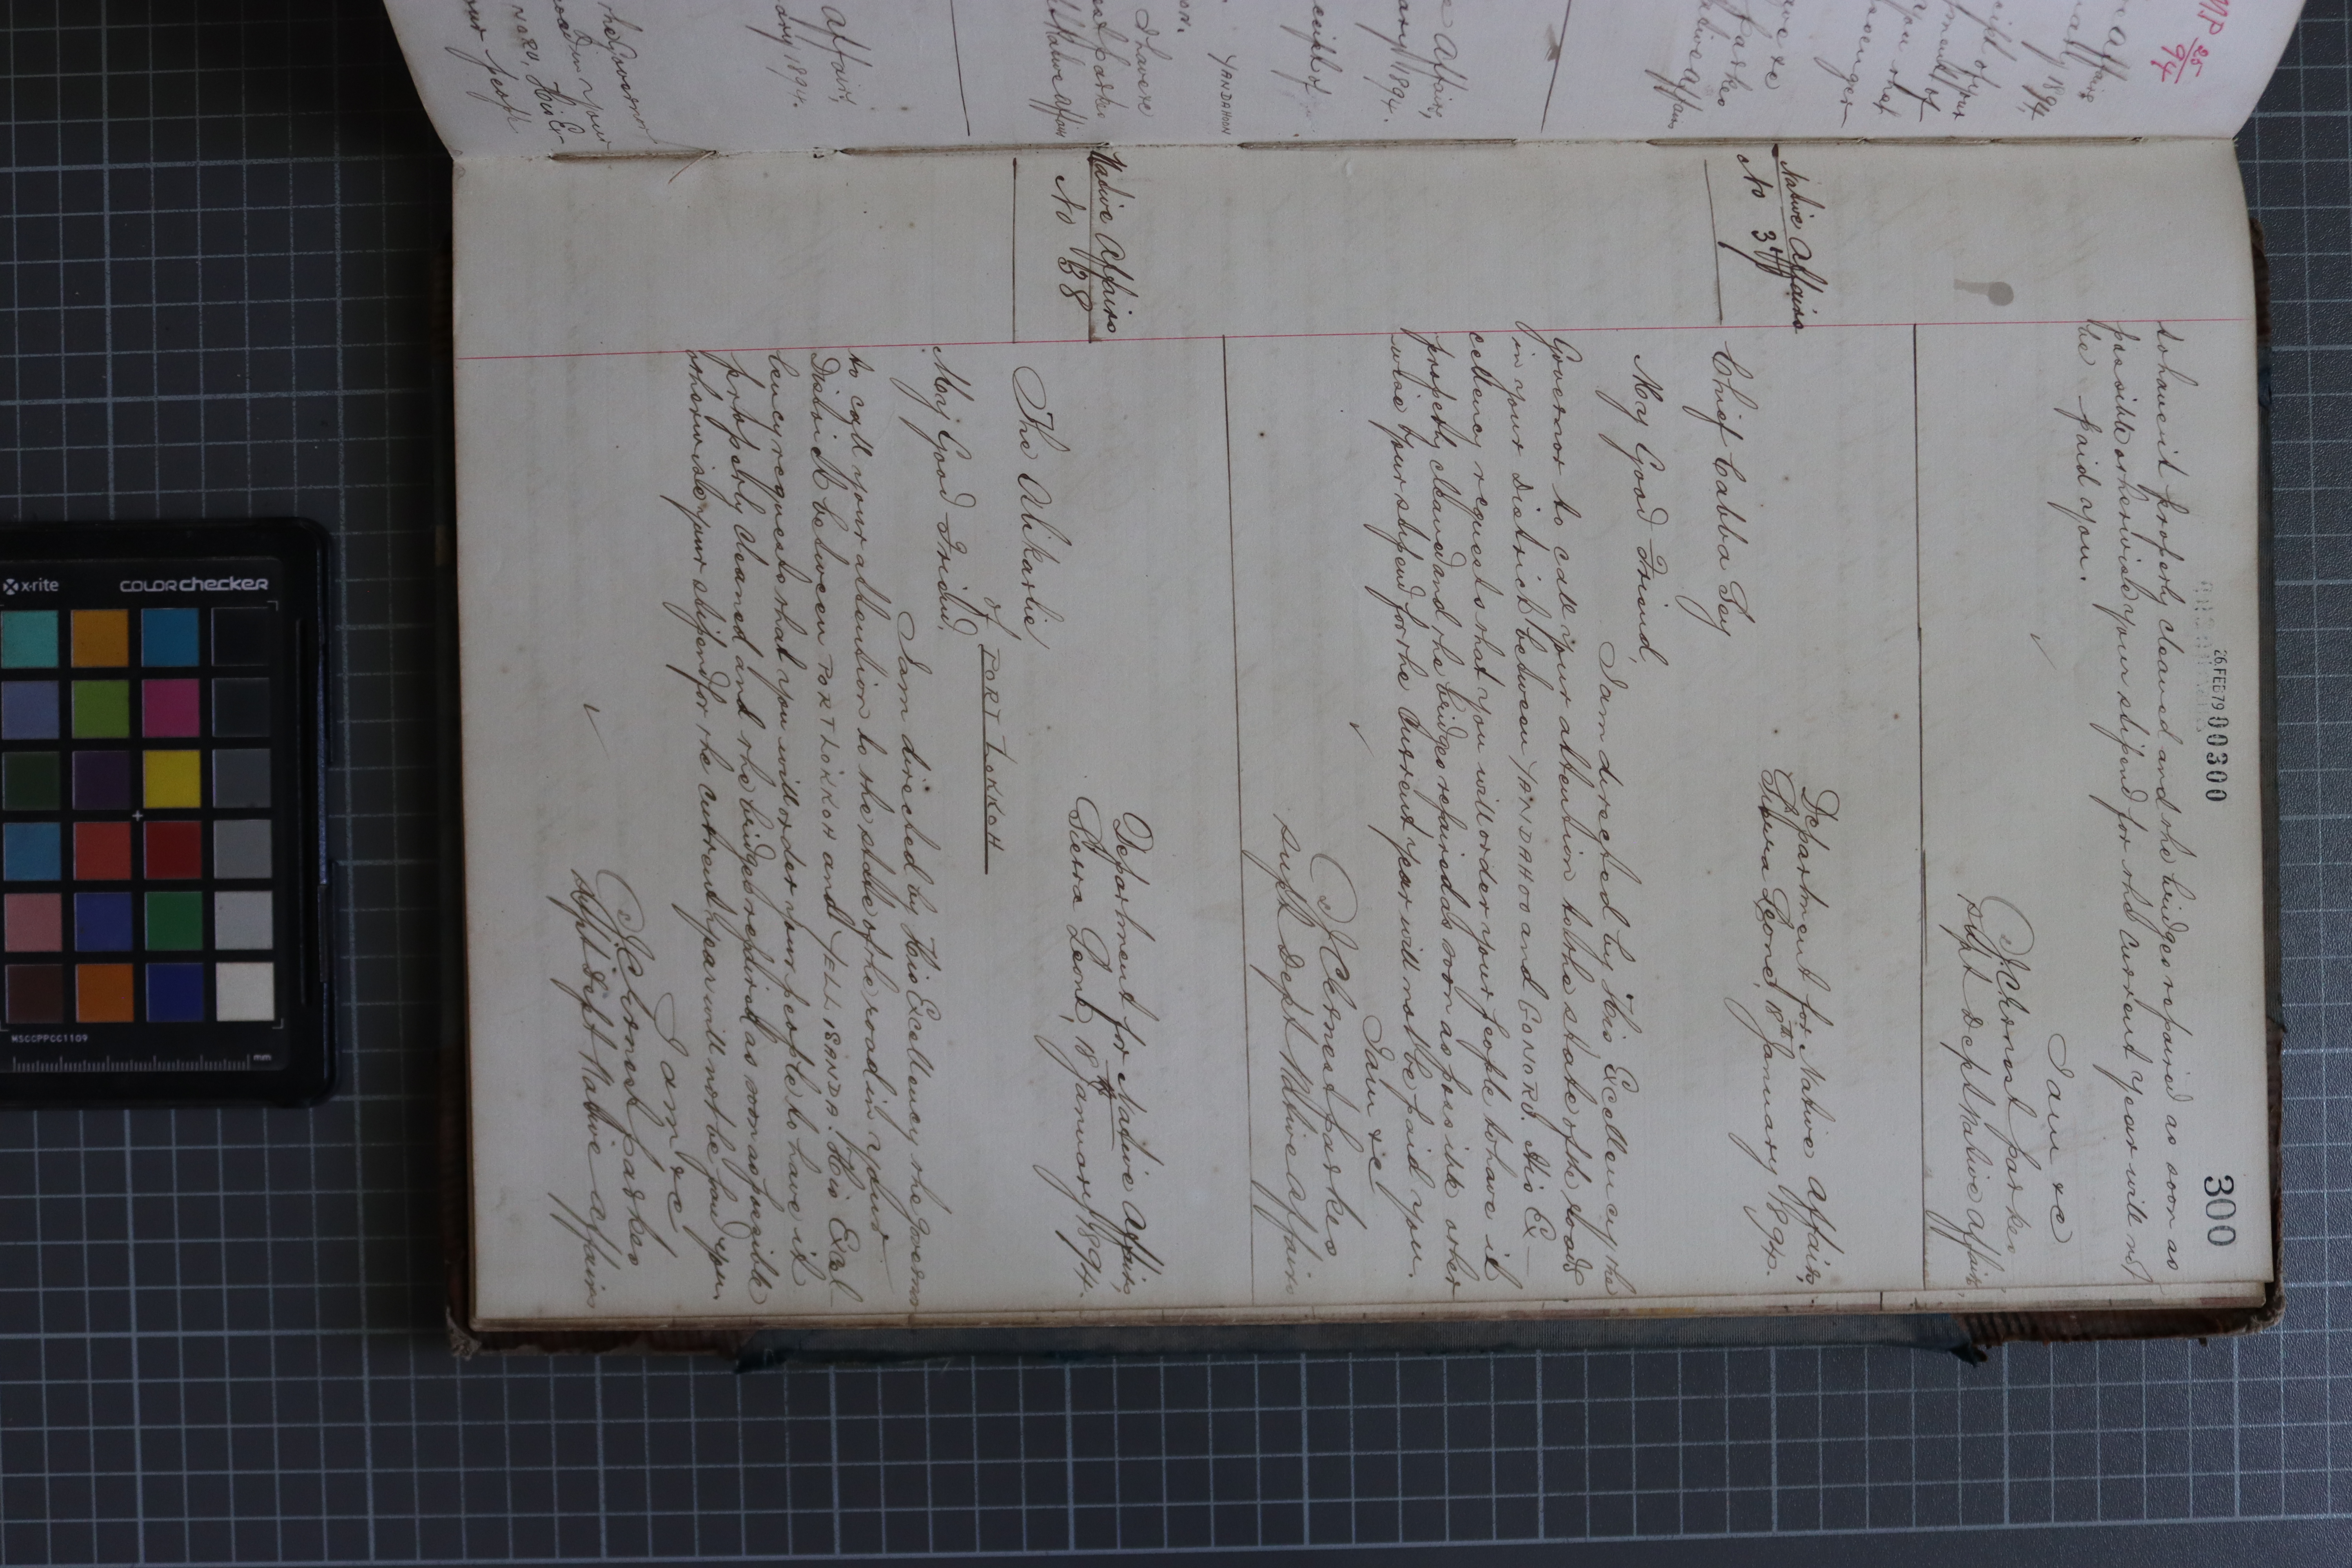 300
26 FEB 79 00300
to have it properly cleaned and the bridges repaired as soon as
possible otherwise your stipend for the current year will not
be paid you.
I am &c
J C Ernest Parkes
Supt Dept Native Affairs
Native Affairs
No 37
Department for Native Affairs,
Sierra Leone, 18th January 1894.
Chief Cabba Say
My Good Friend,
I am directed by His Excellency the
Governor to call your attention to the state of the roads
in your District between YANDAHOO and GONORO. His Ex-
cellency requests that you will order your people to have it
properly cleaned and the bridges repaired as soon as possible other
wise your stipend for the current year will not be paid you.
I am &c
J C Ernest Parkes
Supt Dept Native Affairs
Native Affairs
No 38
Department for Native Affairs,
Sierra Leone, 18th January 1894.
The Alikarlie
of PORT LOKKOH
My Good Friend,
I am directed by His Excellency the Governor
to call your attention to the state of the road in your
District between PORT LOKKOH and SANDA. His Excel
lency requests that you will order your people to have it
properly cleaned and the bridges repaired as soon as possible
otherwise your stipend for the current year will not be paid you.
I am &c
J C Ernest Parkes
Supt Dept Native Affairs
MP 25/94
Affairs
1894.
YANDAHOO
x-rite
colorchecker
MSCCPPCC1109
mm